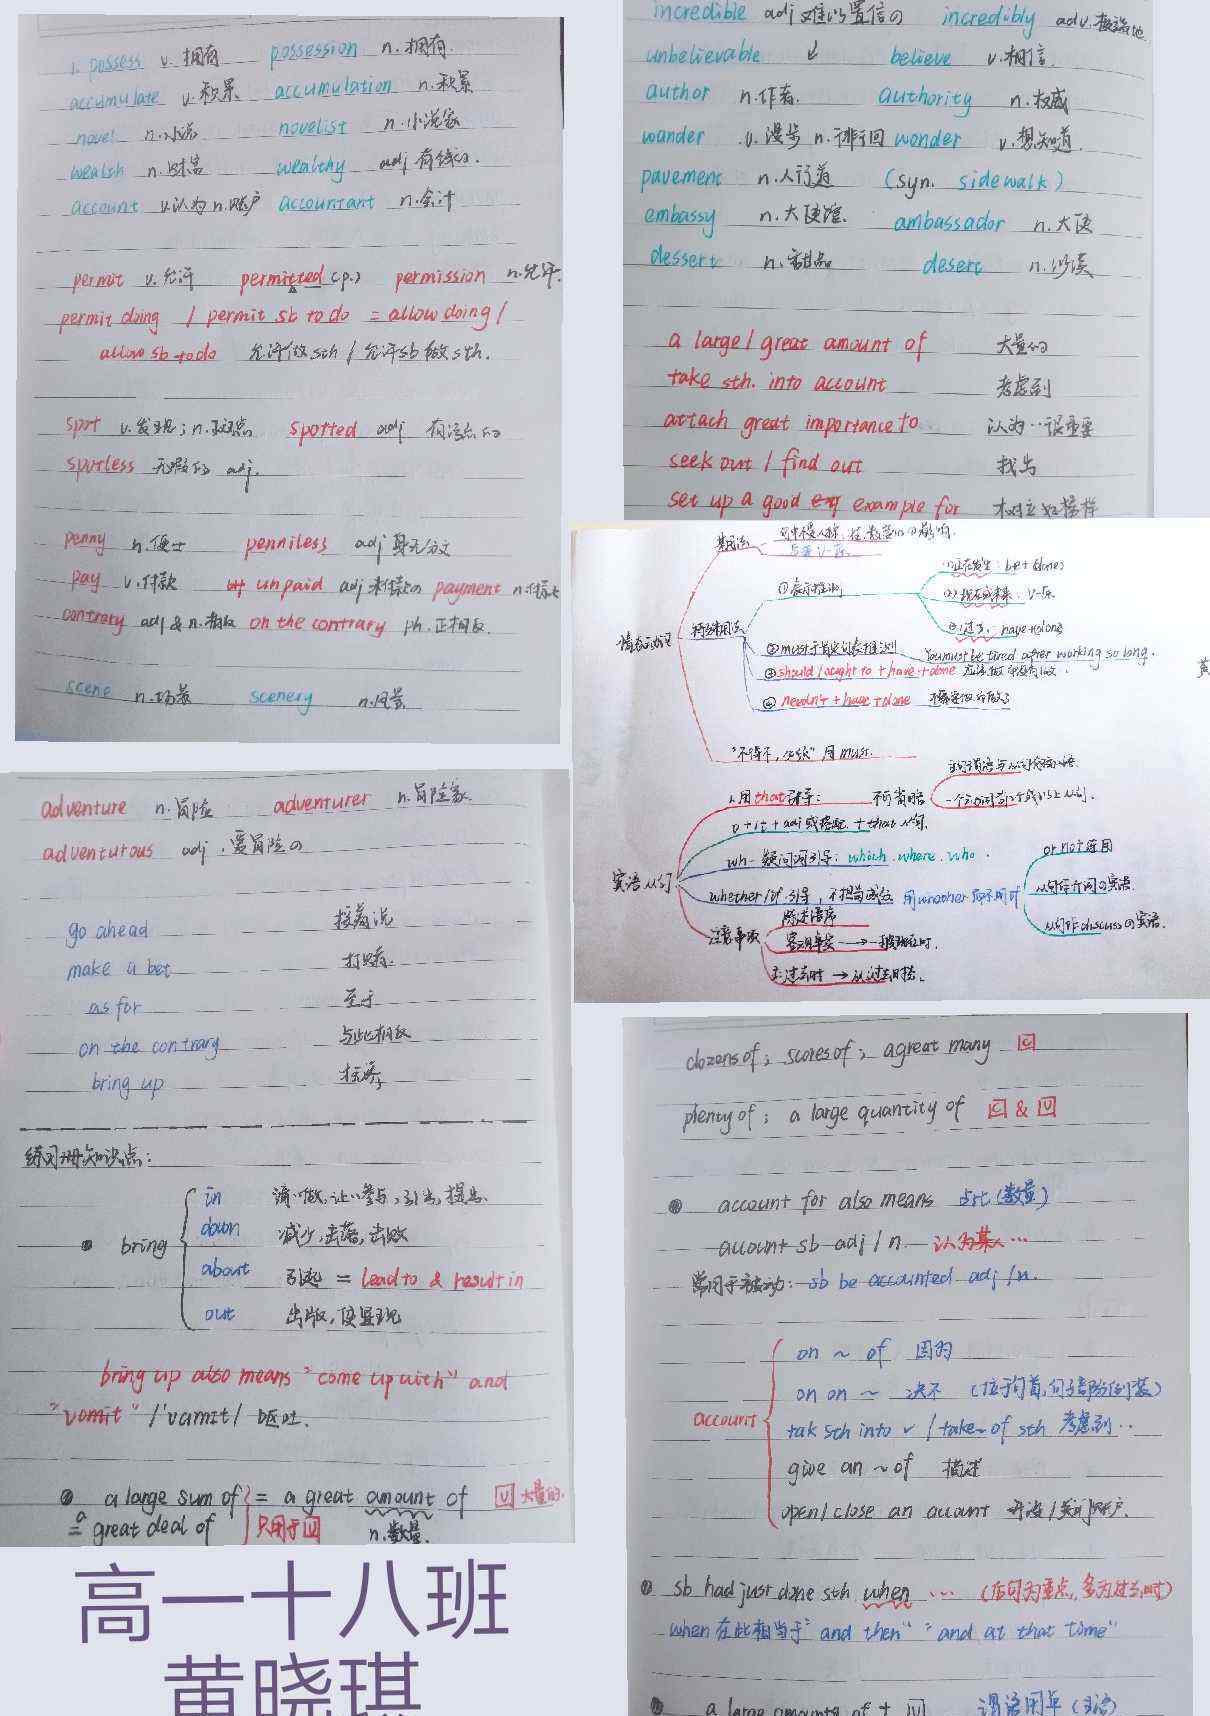 1. possess v. 拥有 possession n. 拥有.
accumulate v.积累 accumulation n.积累
novel n.小说 novelist n.小说家
wealth n.财富 wealthy adj 有钱的.
account v.认为 n.账户 accountant n.会计
permit v.允许 permitted (p.) permission n.允许.
permit doing / permit sb to do = allow doing /
allow sb to do 允许做sth / 允许sb做sth.
spot v.发现; n.斑点 spotted adj 有斑点的
spotless 无瑕的 adj.
penny n.便士 penniless adj 身无分文
pay v.付款 unpaid adj 未付款的 payment n.付款
contrary adj & n.相反 on the contrary ph.正相反.
scene n.场景 scenery n.风景
incredible adj 难以置信の incredibly adv.极端地
unbelievable ↙ believe v.相信
author n.作者. authority n.权威
wander v.漫步 n.徘徊 wonder v.想知道
pavement n.人行道 (syn. sidewalk)
embassy n.大使馆. ambassador n.大使
dessert n.甜品 desert n.沙漠
a large / great amount of 大量的
take sth. into account 考虑到
attach great importance to 认为…很重要
seek out / find out 找出
set up a good example for 树立好榜样
基本用法
与动 V-原.
情态动词
特殊用法
①表示推测
①正在发生: be + doing
②现在或未来: V-原
③过去. have+done
②must于肯定句表推测 You must be tired after working so long.
③should / ought to + have + done 应该做而没有做.
④needn't + have + done 不需要做而做了
"不得不,必须" 用must.
宾语从句
1.用that引导: 不可省略
v + it + adj 或搭配 + that 从句.
wh- 疑问词引导: which. where. who.
whether/if引导, 不担当成分 用whether而不用if时
or not 连用
从句作介词の宾语.
从句作discussの宾语.
注意事项
陈述语序
客观事实 → 一般现在时.
主:过去时 → 从:过去时态.
adventure n.冒险 adventurer n.冒险家.
adventurous adj. 爱冒险の
go ahead 接着说
make a bet 打赌.
as for 至于
on the contrary 与此相反
bring up 抚养
练习册知识点:
bring
in
down 减少,击落,击败
about 引起 = lead to & result in
out 出版,使显现
bring up also means "come up with" and
"vomit" /'vɑmit/ 呕吐.
a large sum of = a great amount of U 大量的.
= a great deal of 只用于U n.数量.
dozens of; scores of; a great many C
plenty of; a large quantity of C & U
account for also means 占(数量)
account sb adj / n. 认为某人…
常用于被动: sb be accounted adj / n.
account
on ~ of 因为
on on ~ 决不 (位于句首,句子部分倒装)
tak sth into ~ / take ~ of sth 考虑到..
give an ~ of 描述
open / close an account 开设/关闭账户.
sb had just done sth when … (后句为重点,多为过去时)
when 在此相当于 "and then" "and at that time"
a large amounts of + U 谓语用单(主语)
高一十八班
黄晓琪